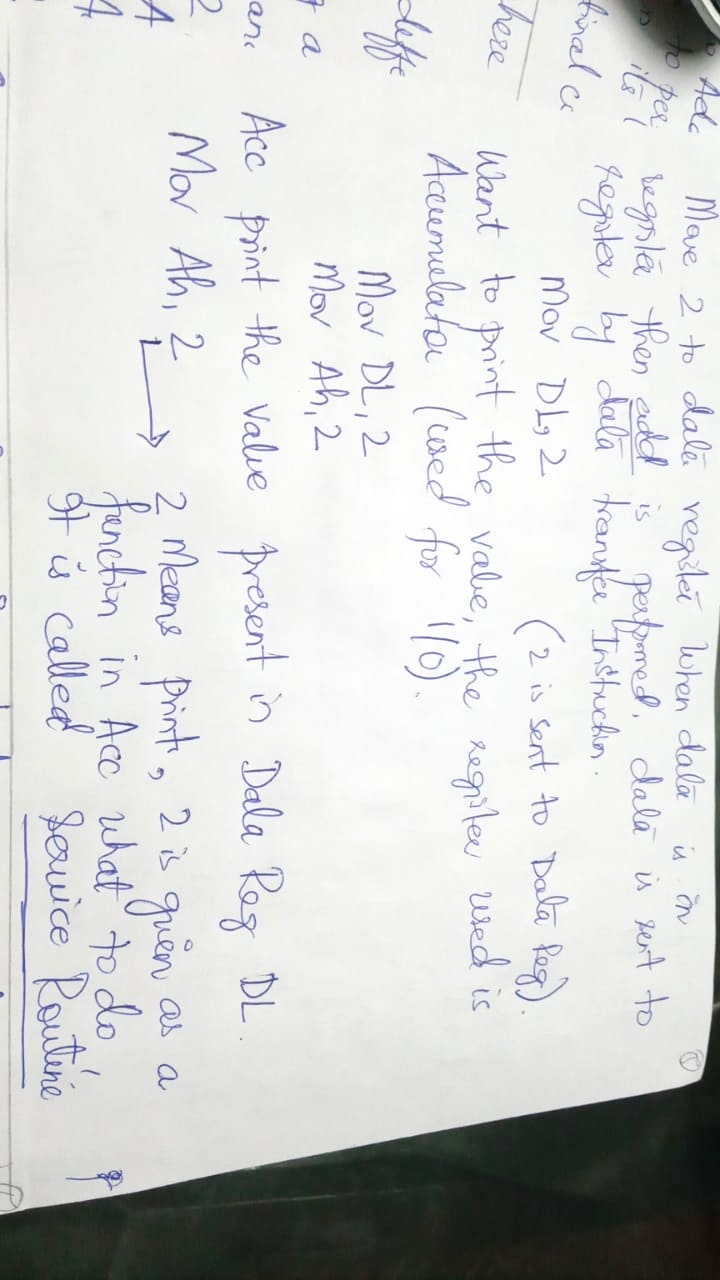 Move 2 to data register when data is in
register then add is performed, data is sent to
register by data transfer Instruction.
Mov DL, 2 (2 is sent to Data Reg).
Want to print the value, the register used is
Accumulator (used for I/O).
Mov DL, 2
Mov Ah, 2
Acc print the value present in Data Reg DL.
Mov Ah, 2 → 2 Means print, 2 is given as a
function in Acc what to do
It is called Service Routine